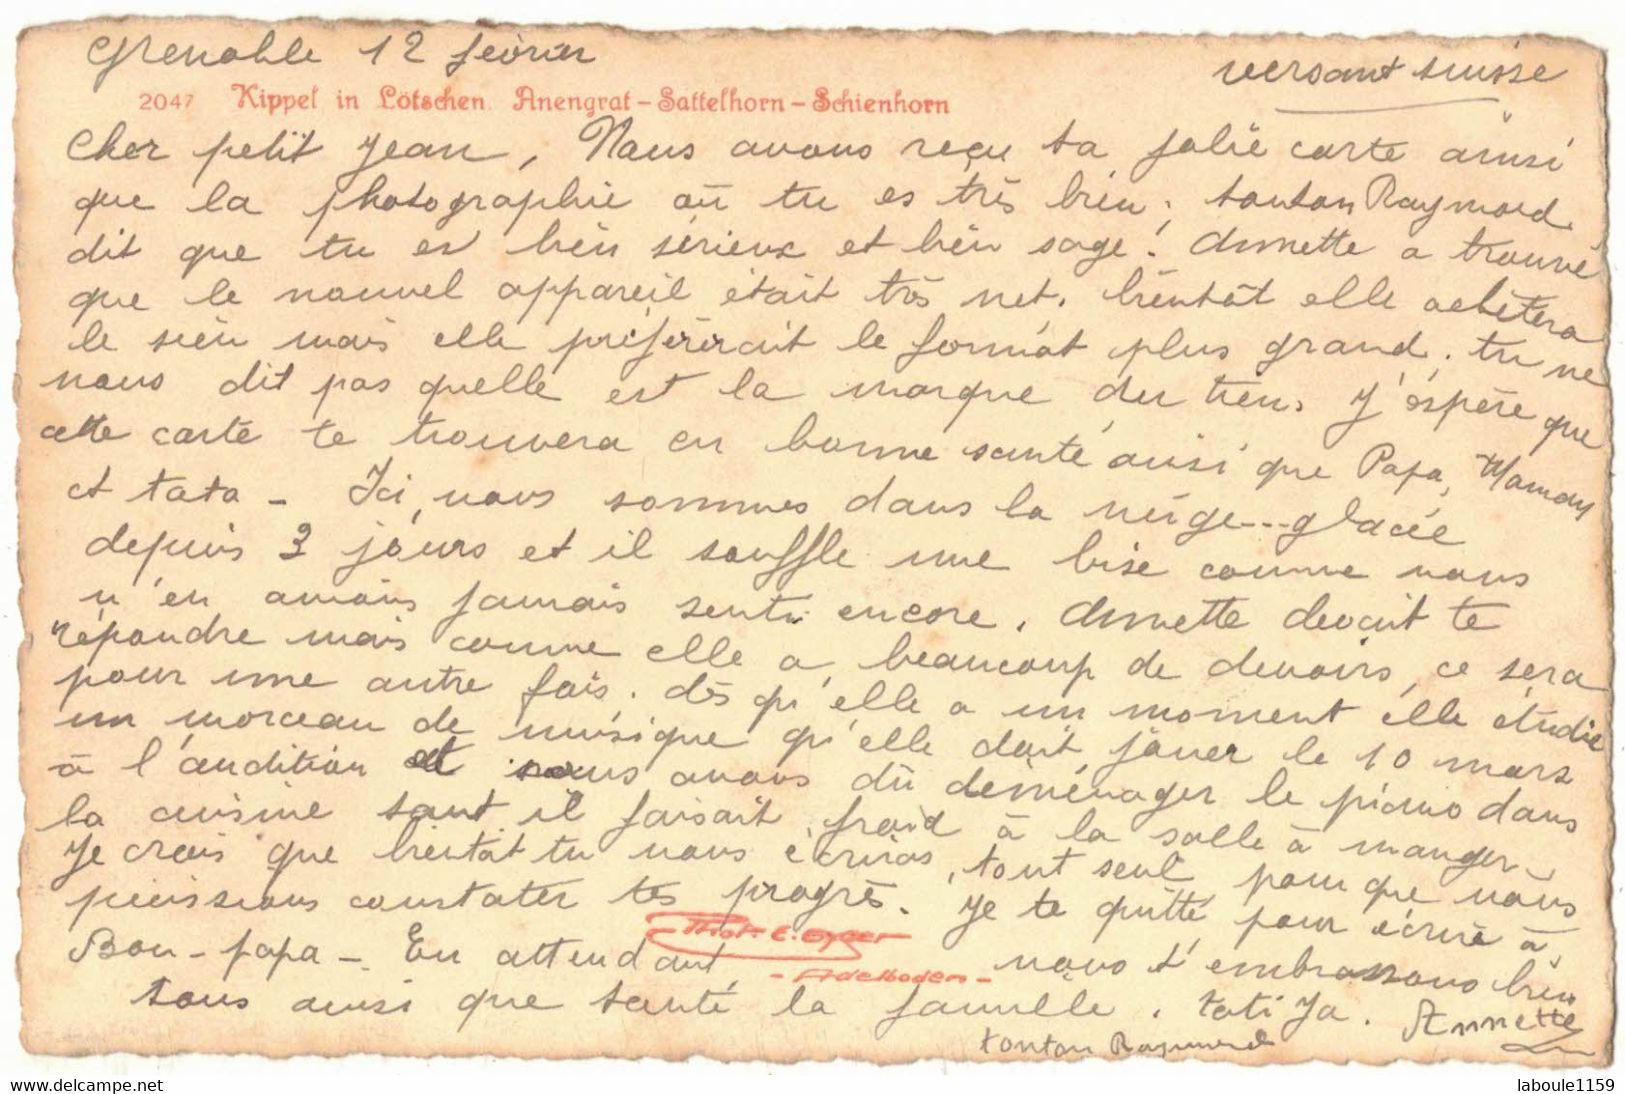 Grenoble 12 février
versant suisse
2047 Kippel in Lötschen. Anengrat – Sattelhorn – Schienhorn
Cher petit Jean, Nous avons reçu ta jolie carte ainsi
que la photographie où tu es très bien ; tonton Raymond
dit que tu es bien sérieux et bien sage ! Annette a trouvé
que le nouvel appareil était très net. bientôt elle achètera
le sien mais elle préfèrerait le format plus grand. tu ne
nous dit pas quelle est la marque du tien. J'espère que
cette carte te trouvera en bonne santé ainsi que Papa, Maman
et tata – Ici, nous sommes dans la neige...glacée
depuis 3 jours et il souffle une bise comme nous
n'en avions jamais senti encore. Annette devait te
répondre mais comme elle a beaucoup de devoirs, ce sera
pour une autre fois. dès qu'elle a un moment elle étudie
un morceau de musique qu'elle doit jouer le 10 mars
à l'audition et nous avons dû déménager le piano dans
la cuisine tant il faisait froid à la salle à manger.
Je crois que bientôt tu nous écriras, tout seul pour que nous
puissions constater tes progrès. Je te quitte pour écrire à
Bon-papa – En attendant, nous t'embrassons bien
Phot. E. Gyger
- Adelboden -
tous ainsi que toute la famille. tati Ja. Annette
tonton Raymond
laboule1159